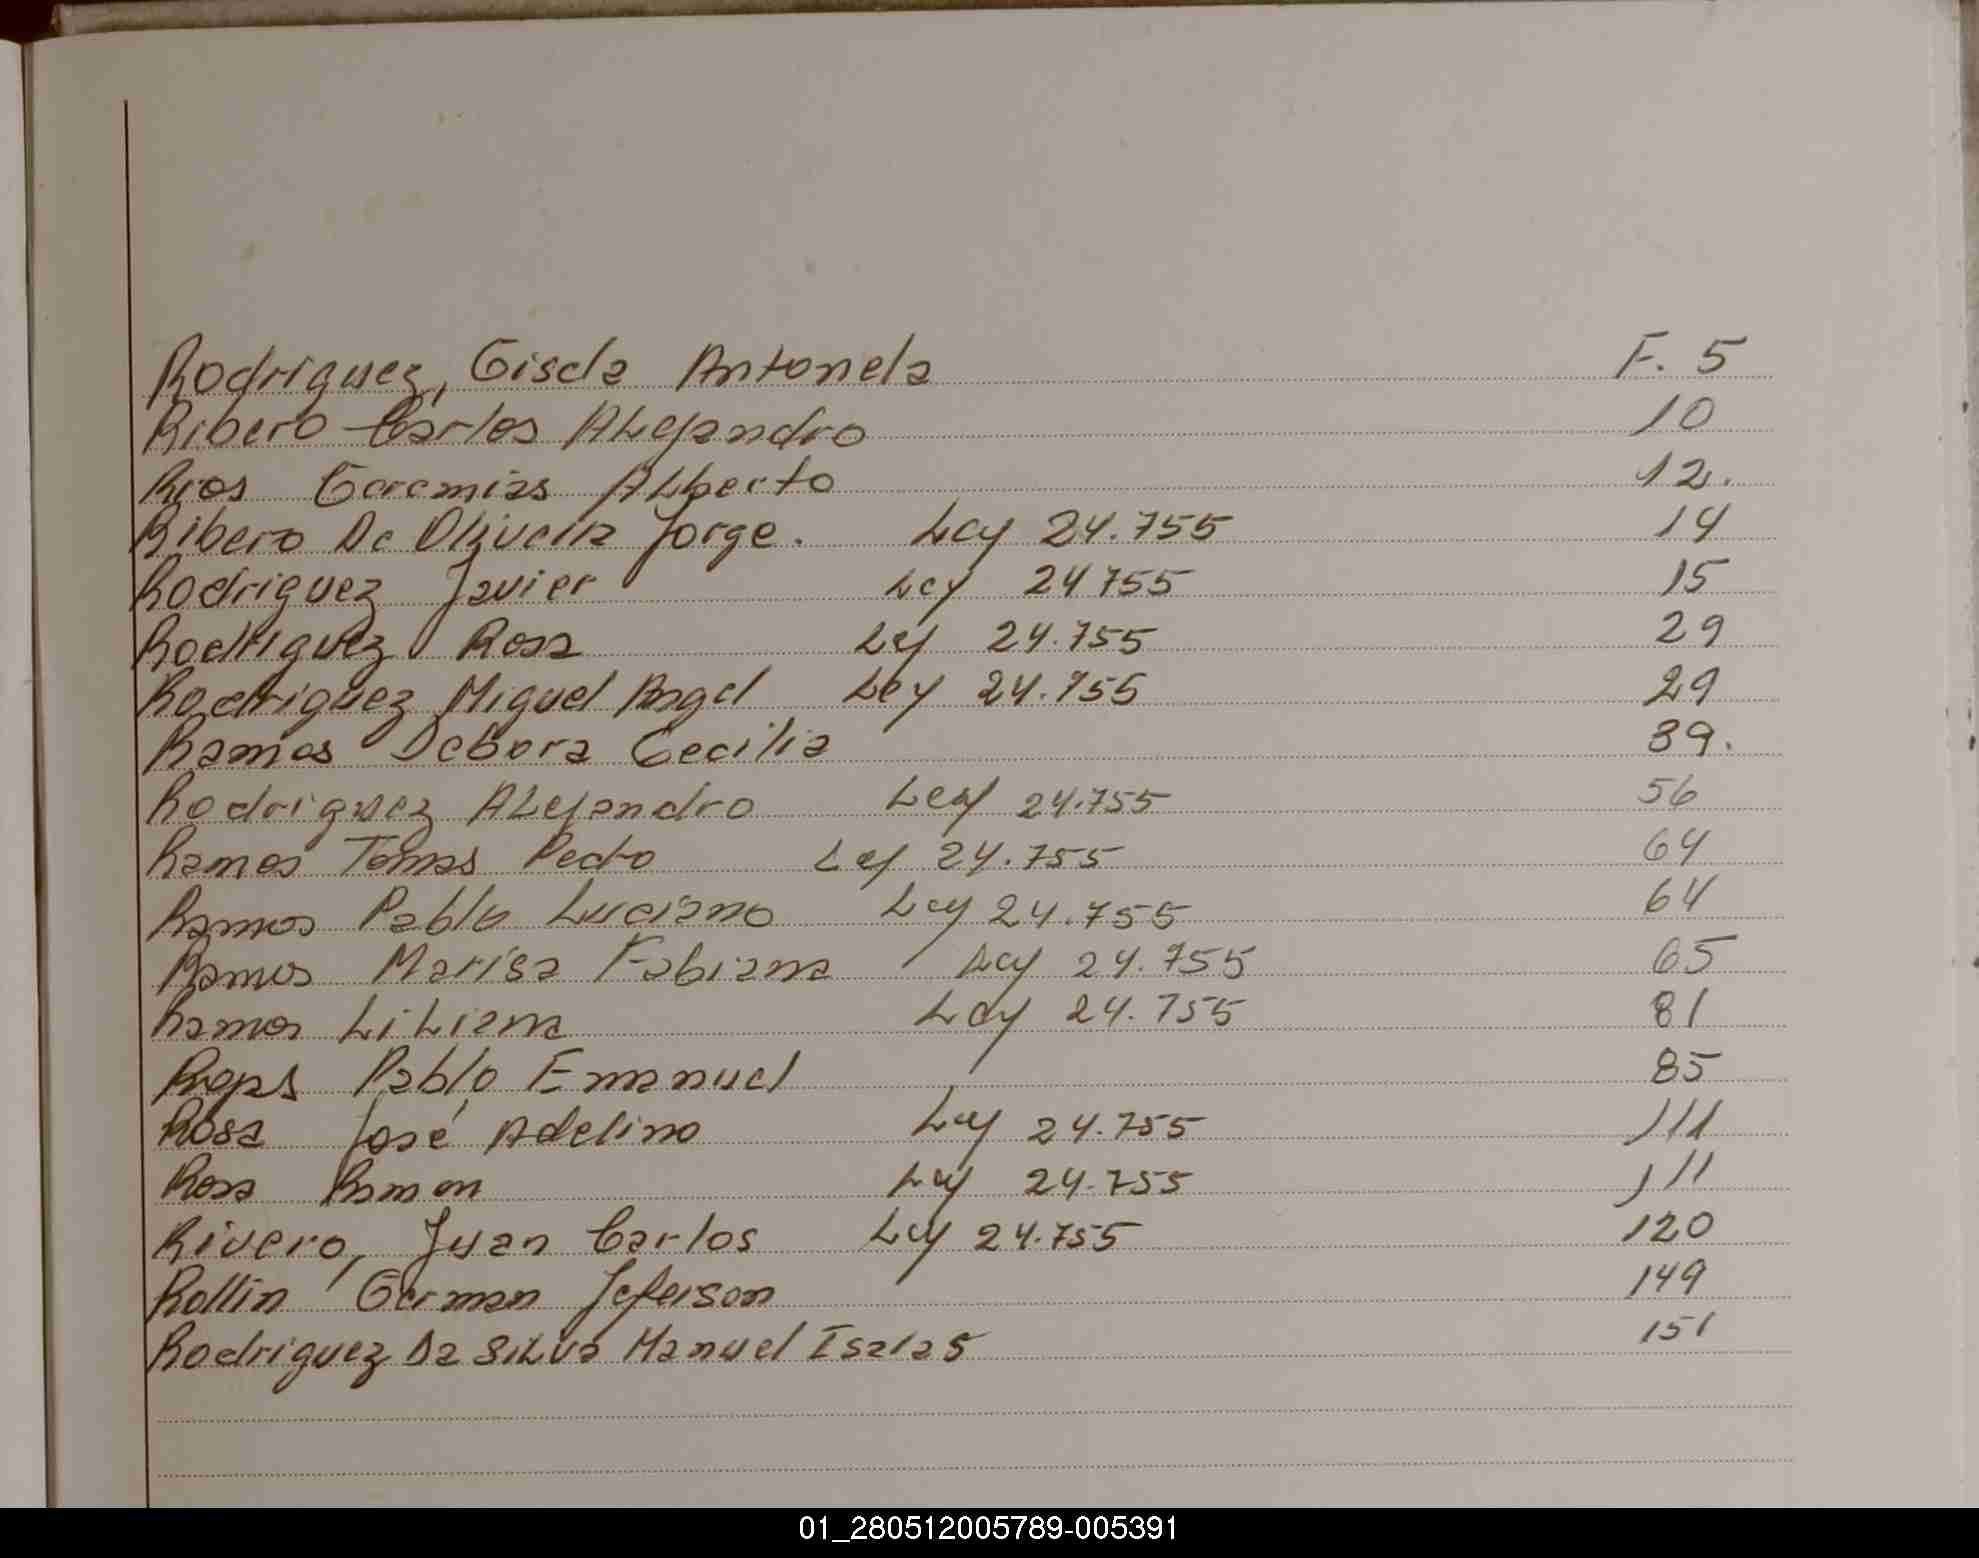 Rodriguez, Gisela Antonela F. 5
Ribero Carlos Alejandro 10
Rios Geremias Alberto 12.
Ribero De Oliveira Jorge. Ley 24.755 14
Rodriguez Javier Ley 24755 15
Rodriguez Rosa Ley 24.755 29
Rodriguez Miguel Angel Ley 24.755 29
Ramos Debora Cecilia 39.
Rodriguez Alejandro Ley 24.755 56
Ramos Tomas Pedro Ley 24.755 64
Ramos Pablo Luciano Ley 24.755 64
Ramos Marisa Fabiana Ley 24.755 65
Ramos Liliana Ley 24.755 81
Pablo Emanuel 85
Rosa José Adelino Ley 24.755 111
Rosa Ramon Ley 24.755 111
Rivero, Juan Carlos Ley 24.755 120
Rollin German Jeferson 149
Rodriguez Da Silva Manuel Isaias 151
01_280512005789-005391